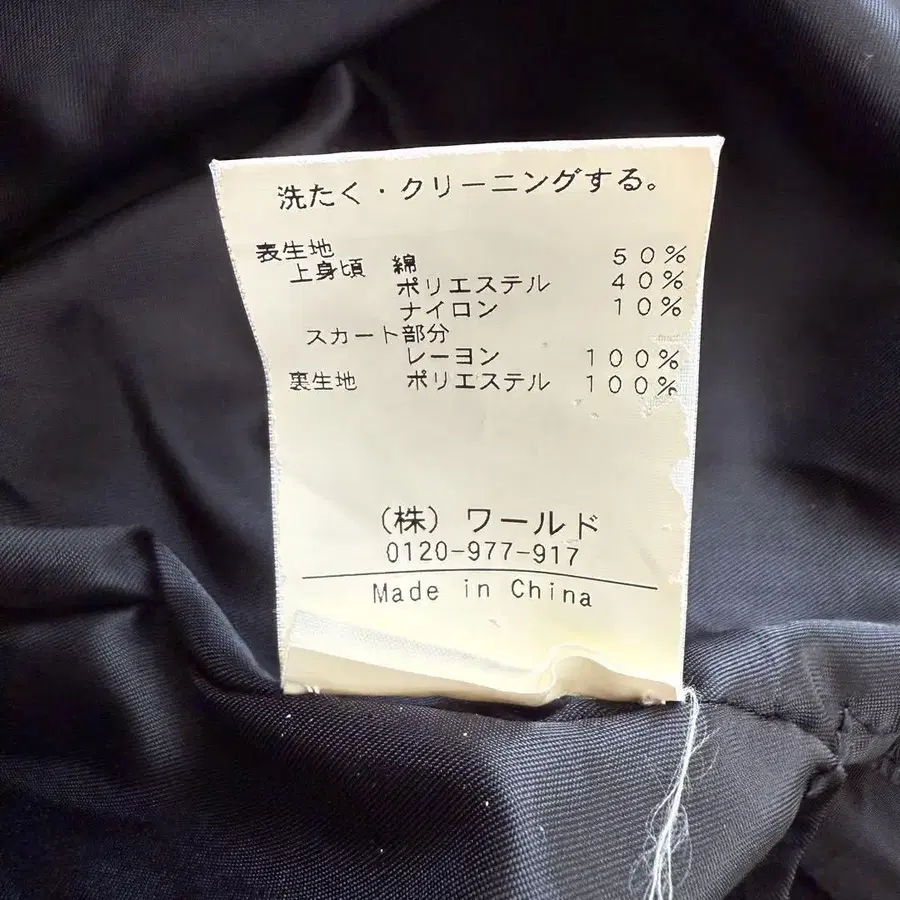 洗たく・クリーニングする。
表生地
上身頃 綿 50%
ポリエステル 40%
ナイロン 10%
スカート部分
レーヨン 100%
裏生地 ポリエステル 100%
(株) ワールド
0120-977-917
Made in China